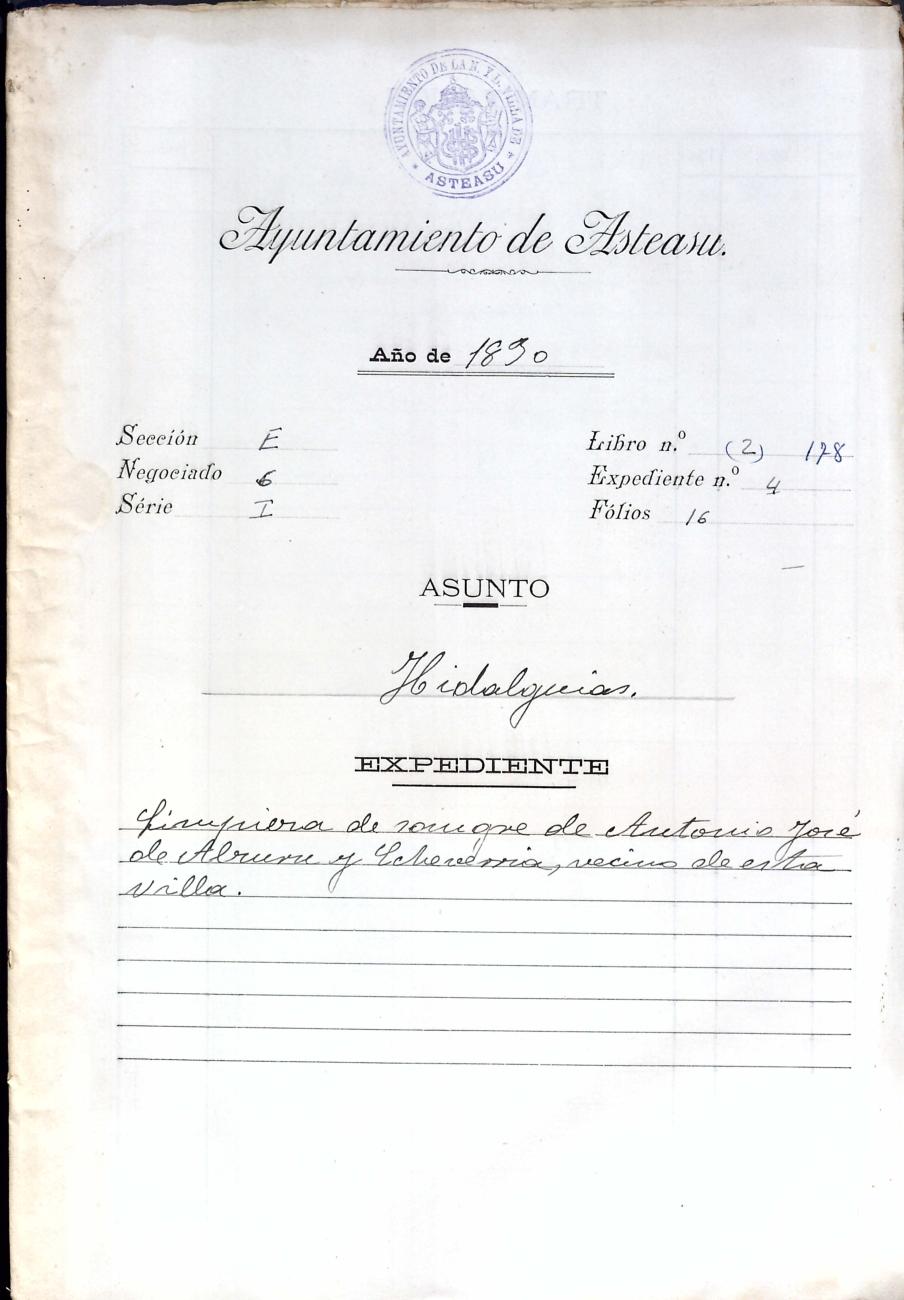 AYUNTAMIENTO DE LA N. Y L. VILLA DE
* ASTEASU *
Ayuntamiento de Asteasu.
Año de 1830
Sección E
Negociado 6
Série I
Libro n.º (2) 178
Expediente n.º 4
Fólios 16
ASUNTO
Hidalguias.
EXPEDIENTE
Limpieza de sangre de Antonio José
de y Echeverria, vecino de esta
villa.